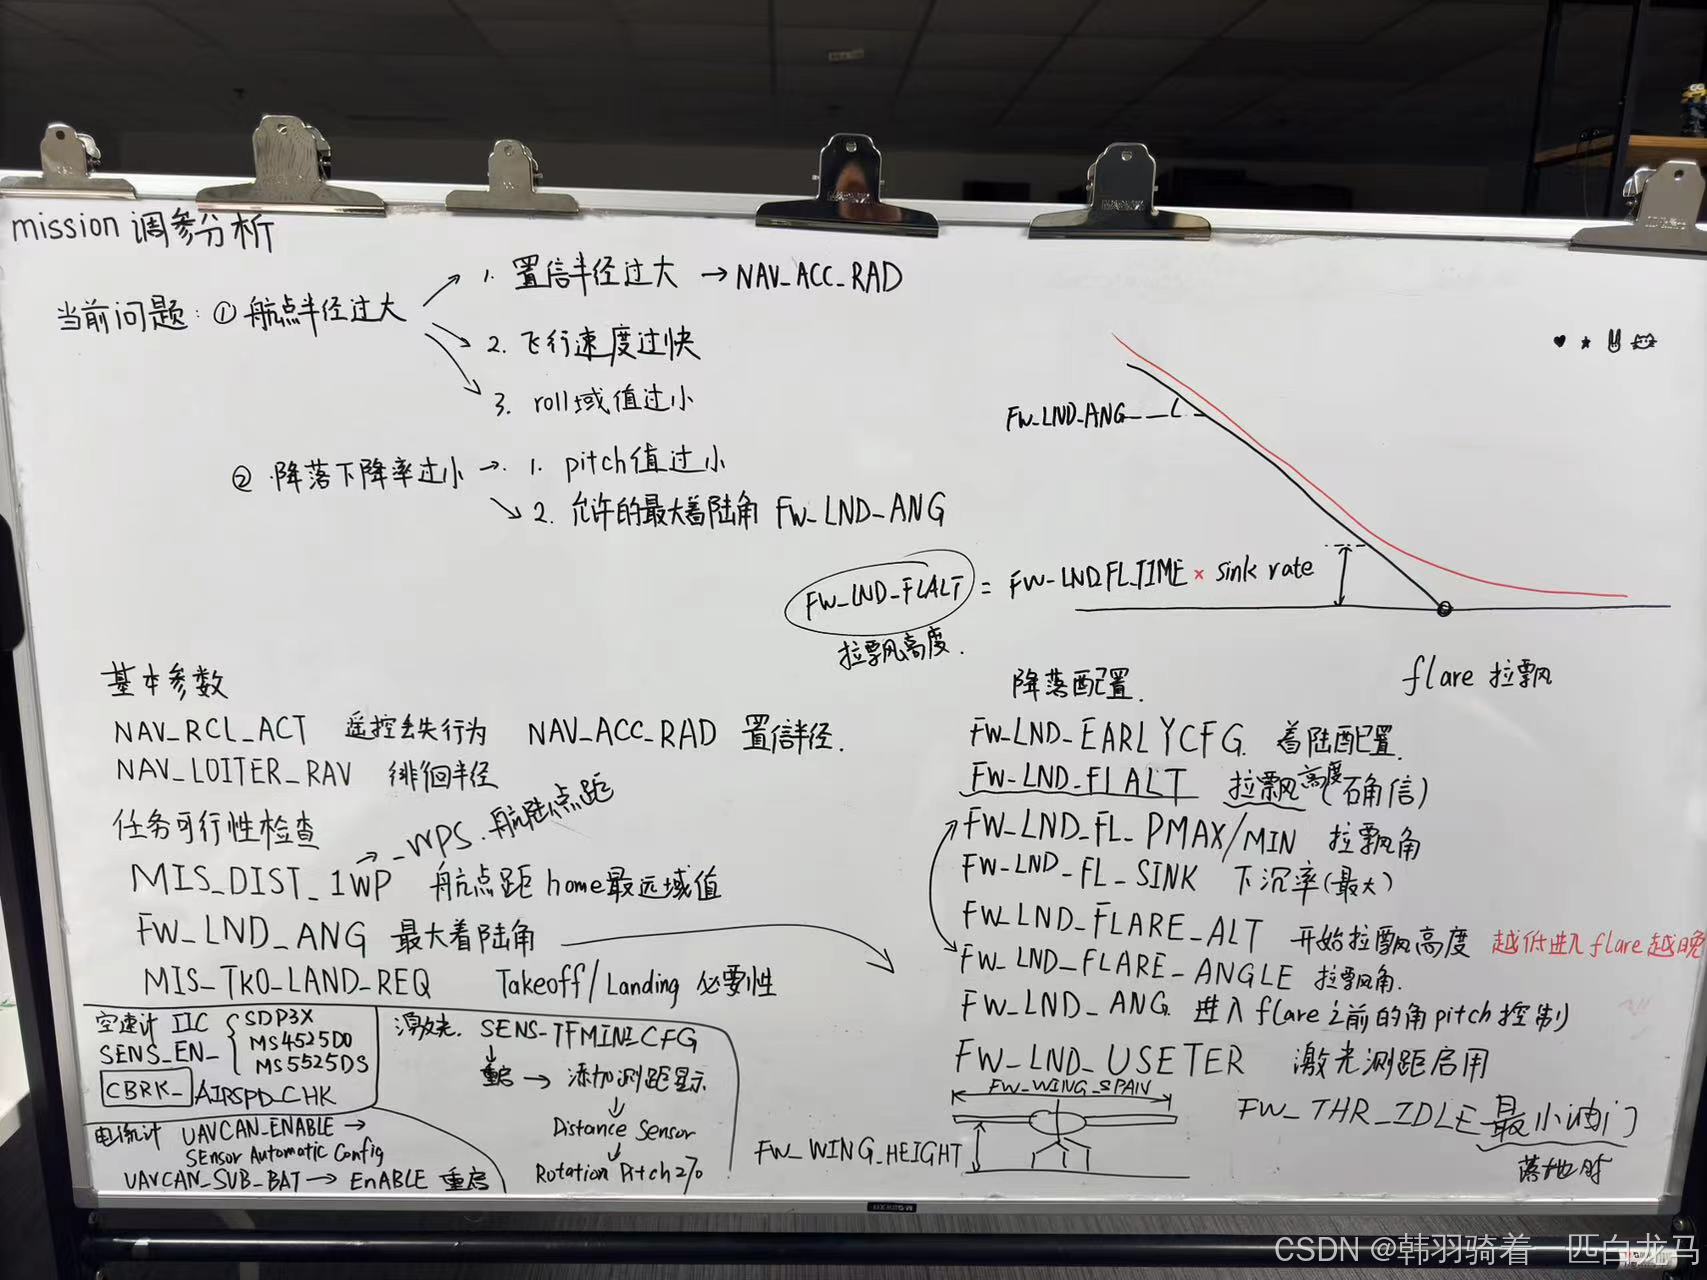 mission 调参分析
当前问题: ① 航点半径过大
1. 置信半径过大 → NAV_ACC_RAD
2. 飞行速度过快
3. roll域值过小
② 降落下降率过小 →
1. pitch值过小
2. 允许的最大着陆角 FW_LND_ANG
FW_LND_ANG
FW_LND_FLALT = FW-LND_FL_TIME × sink rate
拉飘高度.
flare 拉飘
基本参数
NAV_RCL_ACT 遥控丢失行为 NAV_ACC_RAD 置信半径.
NAV_LOITER_RAV 徘徊半径
任务可行性检查
→ _WPS.
MIS_DIST_1WP 航点距home最远域值
FW_LND_ANG 最大着陆角
MIS_TKO_LAND_REQ Takeoff/Landing 必要性
空速计 IIC
SENS_EN_
SDP3X
MS4525DO
MS5525DS
CBRK_AIRSPD_CHK
电流计 UAVCAN_ENABLE →
SEnsor Automatic Config
UAVCAN_SUB_BAT → EnABLE 重启
激光. SENS_TFMINI_CFG
重启 → 添加测距显示
Distance Sensor
Rotation Pitch
降落配置.
FW_LND_EARLYCFG. 着陆配置.
FW_LND_FLALT 拉飘高度(确信)
FW_LND_FL_PMAX/MIN 拉飘角
FW_LND_FL_SINK 下沉率(最大)
FW_LND_FLARE_ALT 开始拉飘高度 越低进入flare越晚
FW_LND_FLARE_ANGLE 拉飘角.
FW_LND_ANG. 进入flare之前的角pitch控制)
FW_LND_USETER 激光测距启用
FW_WING_SPAN
FW_WING_HEIGHT
FW_THR_IDLE 最小油门
落地时
CSDN @韩羽骑着一匹白龙马